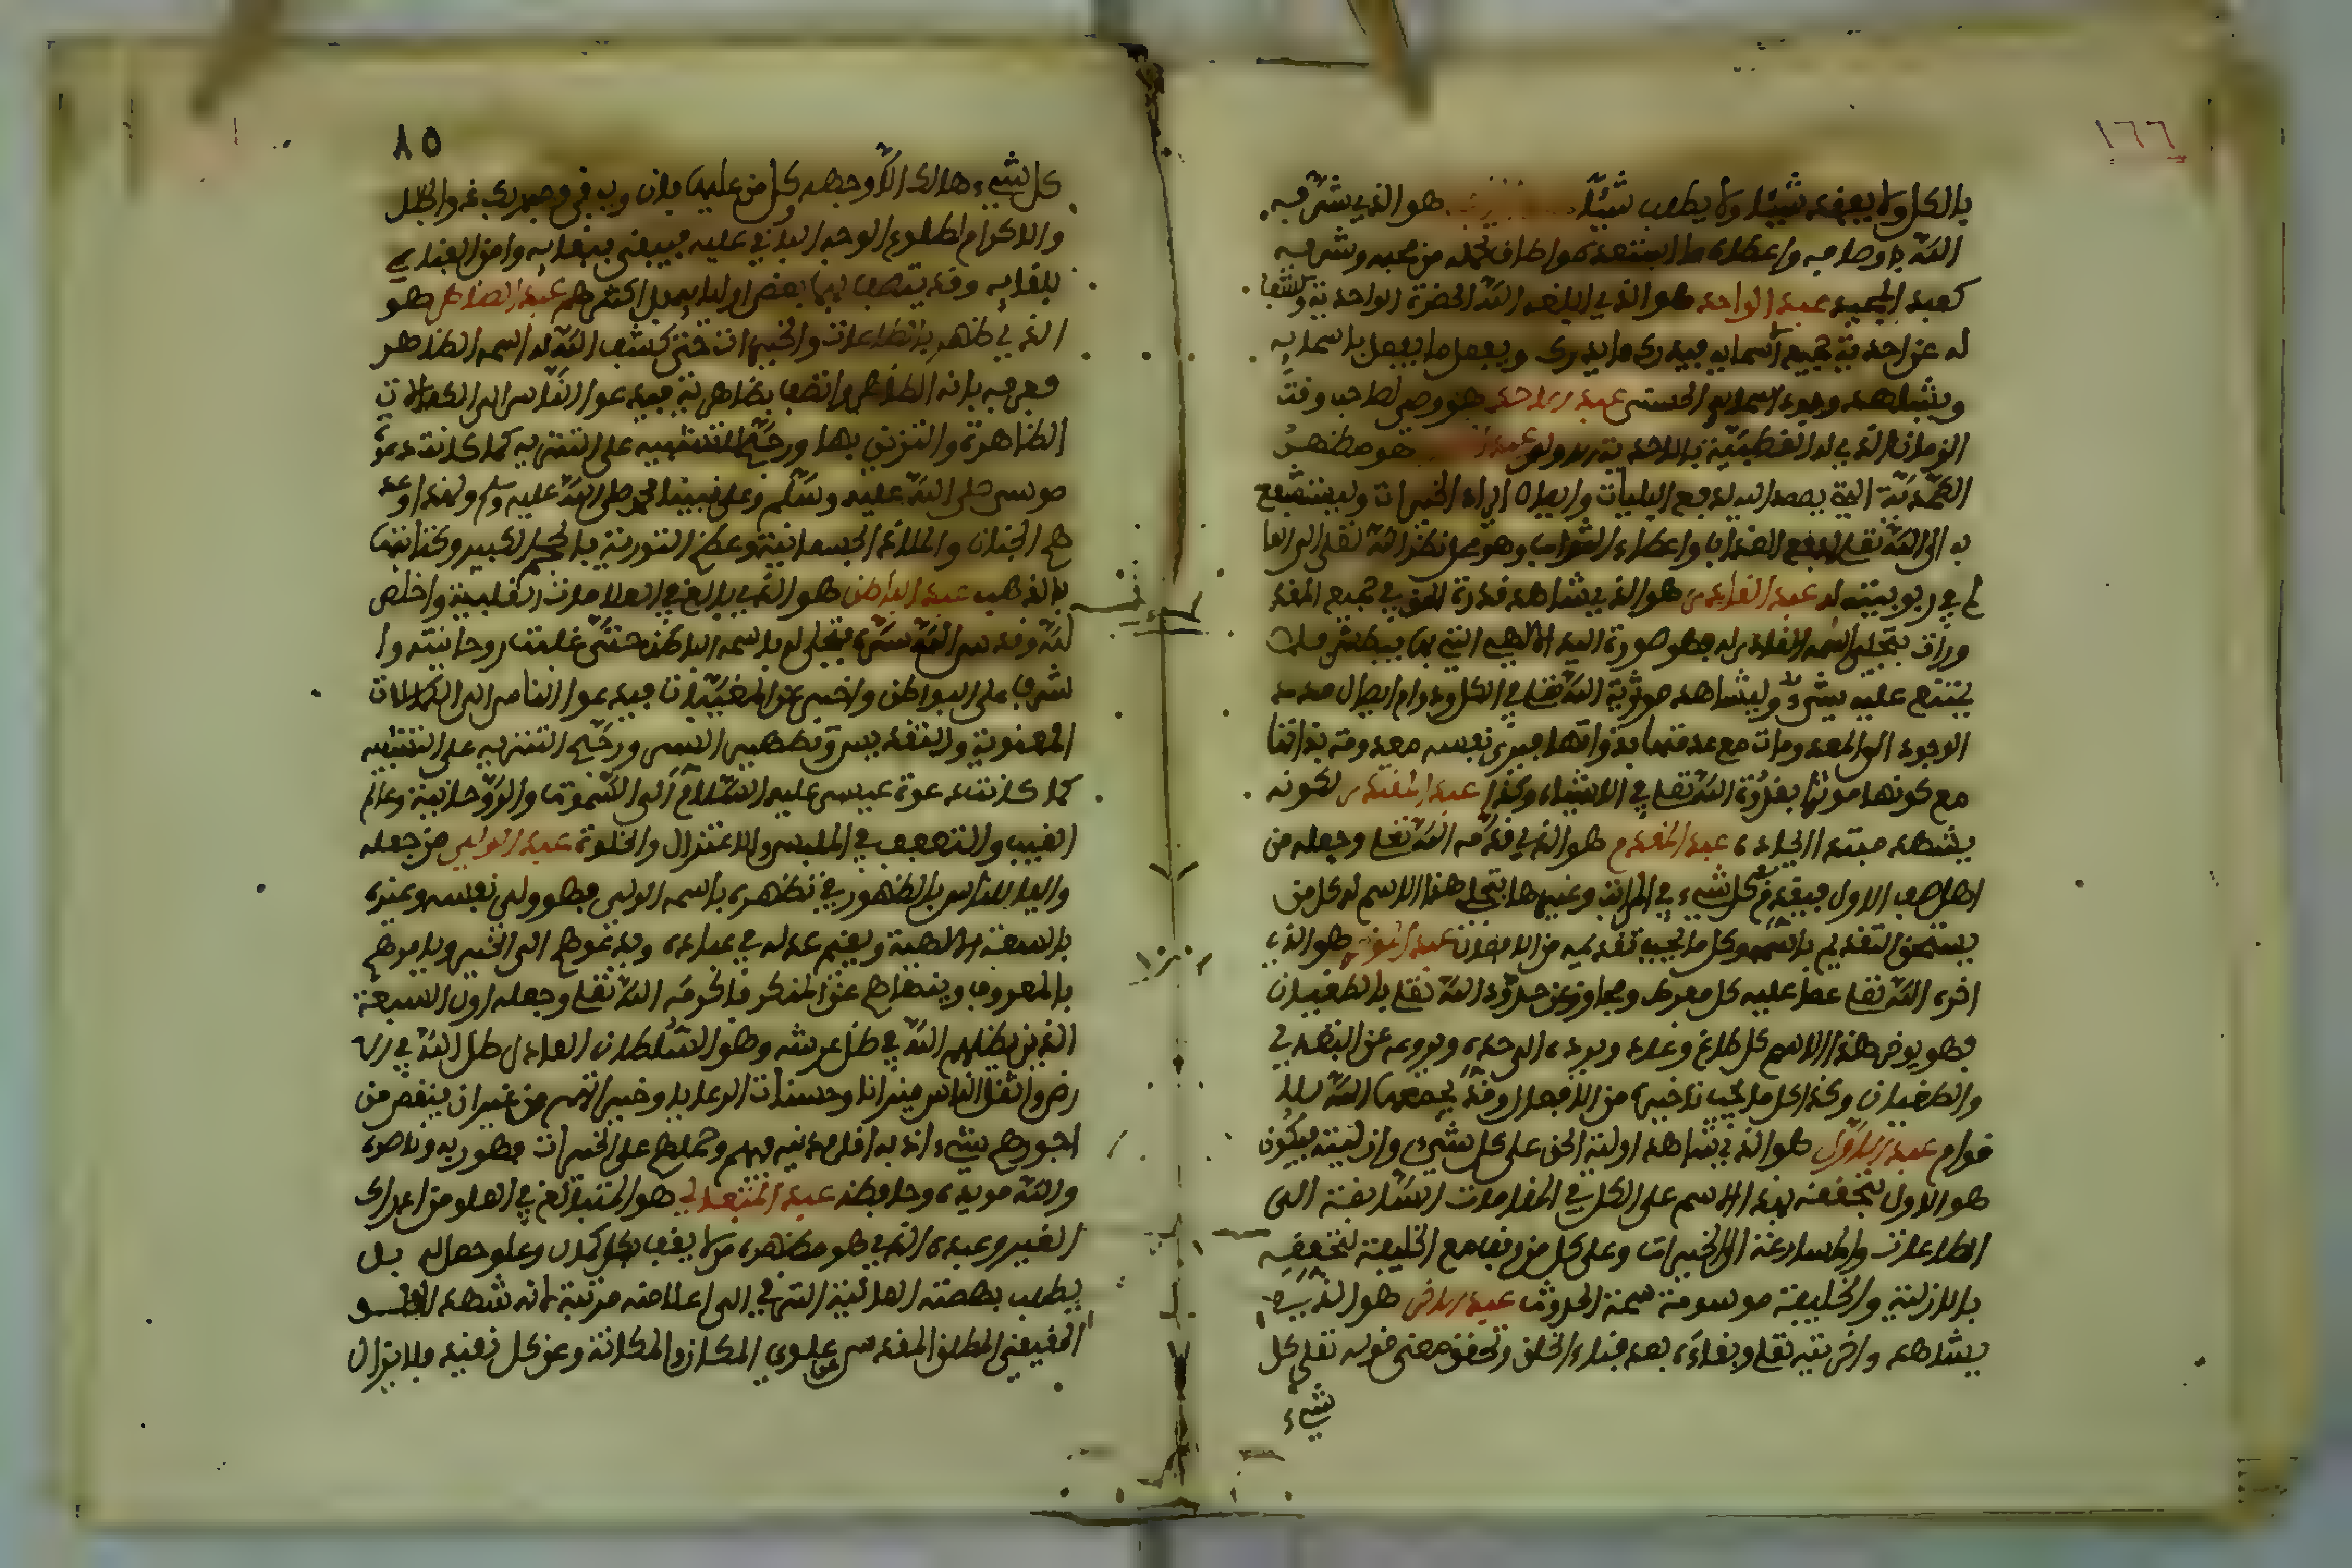 ١٦٦
بالكل ولا يعبد شيئا ولا يطلب شيئا هو الذي شرفه
الله باوصافه واعطاه ما استعد له واطاق تحمله من مجده وشرفه
كعبد المجيد عبد الواحد هو الذي ابلغه الله الحضرة الواحدية وكشف
له عن احدية جميع اسمايه فيدرك ما يدرك ويفعل ما يفعل باسمايه
ويشاهد وجوه اسمايه الحسنى عبد الاحد هو وحيد الوقت صاحب
الزمان الذي له القطبية بالاحدية هو مظهر
الصمدية التي يصمد اليه لدفع البليات وايصال امداد الخيرات ويستشفع
به الى الله تعلى لدفع العذاب واعطاء الثواب وهو محل نظر الله تعلى الى العا
لم في ربوبيته له عبد القادر هو الذي يشاهد قدرة الله في جميع المقد
ورات بتجلي اسمه القادر له فهو صورة اليد الالهية التي بها يبطش فلا
يمتنع عليه شيء ويشاهد موثرية الله تعلى في الكل ودوام ايصال مدد
الوجود الى المعدومات مع عدمها بذواتها فيرى نفسه معدومة بذاتها
مع كونها موثرا بقدرة الله تعلى في الاشياء وكذا عبد المقتدر لكونه
يشهد مبتدا الايجاد عبد المقدم هو الذي قدمه الله تعلى وجعله من
اهل الصف الاول فيقدم كل شيء في المراتب وغيرها بتجلي هذا الاسم له كل من
يستحق التقديم باسمه وكل ما يجب تقديمه من الافعال عبد الموخر هو الذي
اخره الله تعلى عما عليه كل مفرط ومجاوز عن حدود الله تعلى بالطغيان
فهو يوخر بهذا الاسم كل طاغ وعاد ويرده الى حده ويردعه عن التعدي
والطغيان وكذا كل ما يجب تاخيره من الافعال وقد يجمعهما الله تعلى
لاقوام عبد الاول هو الذي شاهد اولية الحق على كل شيء وازليته فيكون
هو الاول بتحققه بهذا الاسم على الكل في المقامات السابقة الى
الطاعات والمسارعة الى الخيرات وعلى كل من وقف مع الخليقة لتحققه
بالازلية والخليقة موسومة بسمة الحدوث عبد الاخر هو الذي
يشاهد واخريته تعلى وبقاءه بعد فناء الخلق وتحقق معنى قوله تعلى كل
شيء
٨٥
كل شيء هالك الا وجهه كل من عليها فان ويبقى وجه ربك ذو الجلل
والاكرام لطلوع الوجه الباقي عليه فيبقى ببقايه وامن الفناء
بلقايه وقد يتصف بهما بعض اوليايه بل اكثرهم عبد الظاهر هو
الذي ظهر بالطاعات والخيرات حتى كشف الله له اسمه الظاهر
فعرفه بانه الظاهر واتصف بظاهريته فيدعو الناس الى الكمالات
الظاهرة والتزين بها ورجح التشبيه على التنزيه كما كانت دعوة
موسى صلى الله عليه وسلم وعلى نبينا محمد صلى الله عليه وسلم ولهذا وعد
هم الجنان والملاذ الجسمانية وعظم التورية بالحجم الكبير وكتابتها
بالذهب عبد الباطن هو الذي بالغ في المعاملات القلبية واخلص
لله وقدس الله سره فتجلى له باسمه الباطن حتى غلبت روحانيته وا
شرف على البواطن واخبر عن المغيبات فيدعو الناس الى الكمالات
المعنوية والتقديس وتطهير السر ورجح التنزيه على التشبيه
كما كانت دعوة عيسى عليه السلام الى السموات والروحانية وعالم
الغيب والتقشف في الملبس والاعتزال والخلوة عبد الوالي من جعله
واليا للناس بالظهور في مظهره باسمه الوالي فهو ولى نفسه وغيره
بالسياسة الالهية ويقيم عدله في عباده ويدعوهم الى الخير ويامرهم
بالمعروف وينهاهم عن المنكر فاكرمه الله تعلى وجعله اول السبعة
الذين يظلهم الله في ظل عرشه وهو السلطان العادل ظل الله في ار
ضه واثقل الناس ميزانا وحسنات الرعايا وخيراتهم من غير ان ينقص من
اجورهم شيء اذ به اقام دينه فيهم وحملهم على الخيرات فهو ربه وناصره
والله مويده وحافظه عبد المتعالي هو المتبالغ في العلو من ادراك
الغير وعبده الذي هو مظهره من لا يقف بكل كمال وعلو حصل له بل
يطلب بهمته العالية الترقي الى اعلا منه مرتبة لانه شهد العلو
الحقيقي المطلق المقدس عن علوي المكان والمكانة وعن كل تقييد فلا يزال